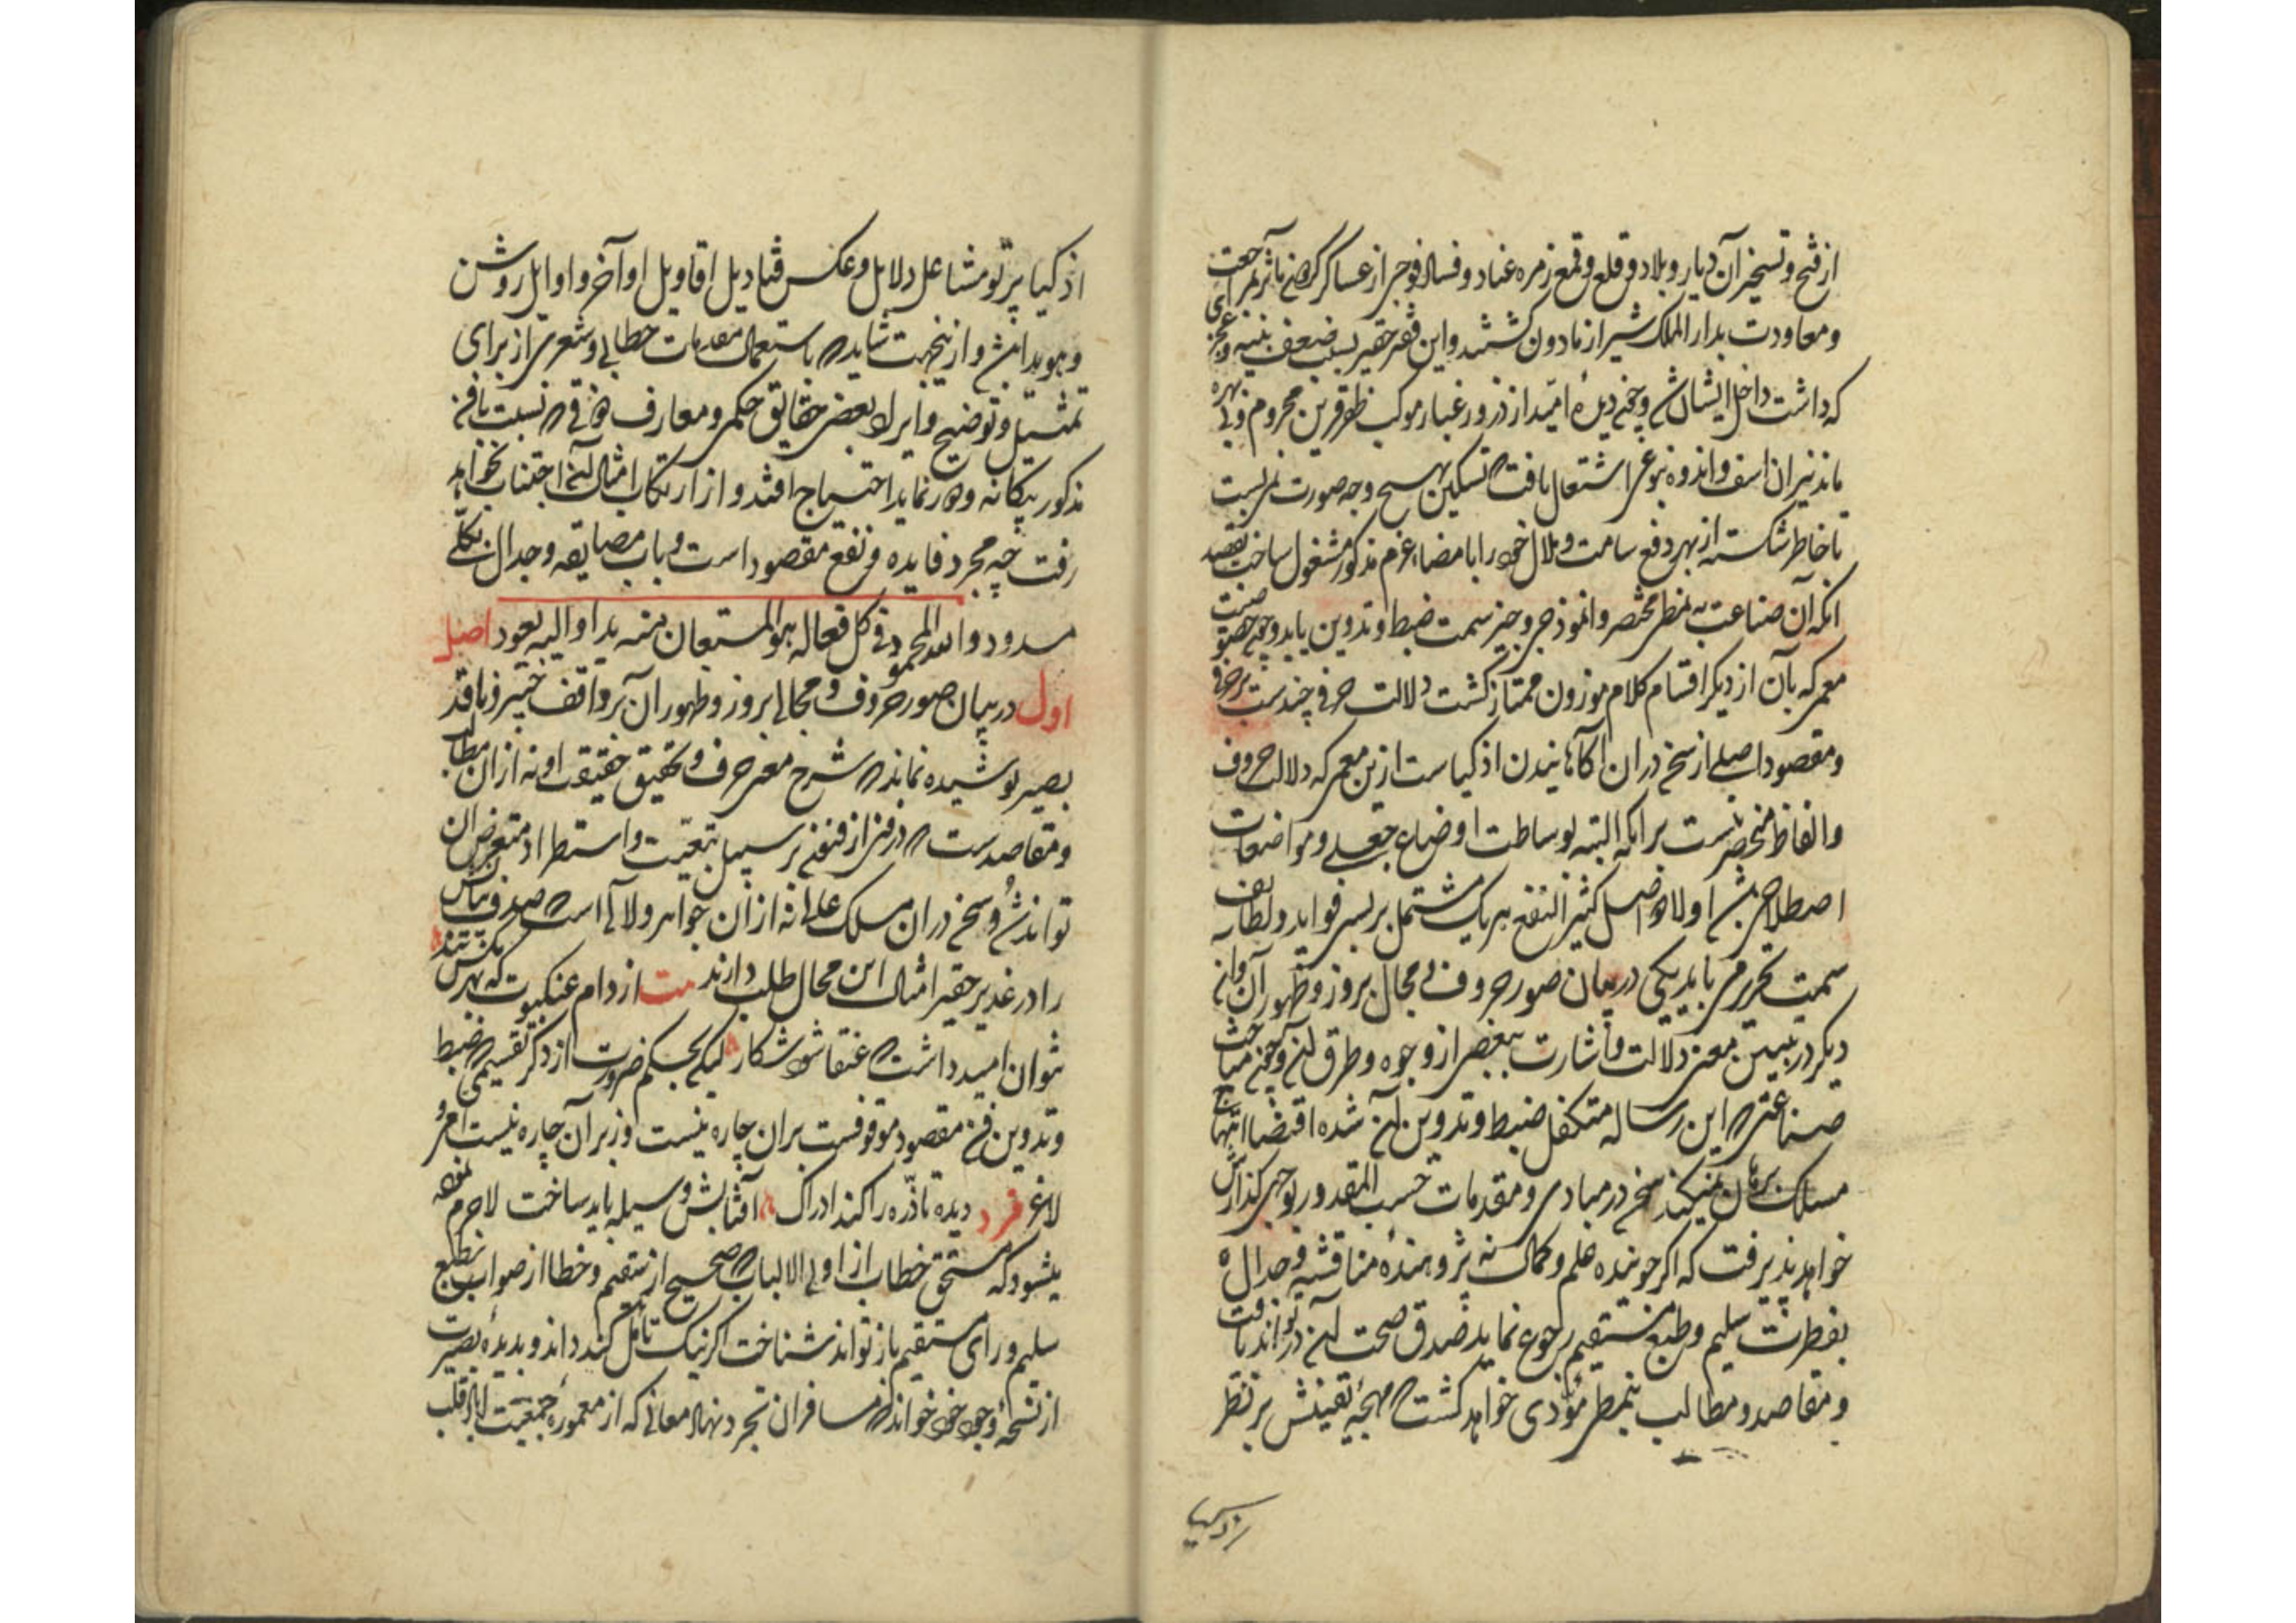 از فتح و تسخیر آن دیار و بلاد و قلع و قمع زمره عناد و فساد فوجی از عساکر گردون مآثر بمراجعت
و معاودت بدار الملک شیراز مأذون گشتند و این فقیر حقیر بسبب ضعف بنیه و عجزی
که داشت داخل ایشان شد و چون دیدهٔ امید از ذرور غبار موکب ظفرقرین محروم و بی بهره
ماند نیران اسف و اندوه بنوعی اشتعال یافت که تسکین بهیچ وجه صورت نمی بست
تا خاطر شکسته از بهر دفع سامت و ملال خود را بامضاء عزم مذکور مشغول ساخت بقصد
آنکه آن صناعت بر نمط مختصر و انموذجی وجیز سمت ضبط و تدوین یابد و چون خصوصیت
معمی که بآن از دیگر اقسام کلام موزون ممتاز گشت دلالت حرفی چندست بر حرفی
و مقصود اصلی از سخن در آن آگاهانیدن اذکیاست ازین معنی که دلالت حروف
و الفاظ منحصر نیست برانکه البته بوساطت اوضاع جعلی و مواضعات
اصطلاحی باشد اولا دو اصل کثیر النفع هر یک مشتمل بر بسی فواید و لطایف
سمت تحریر می یابد یکی در بیان صور حروف و مجال بروز و ظهور آن و آن
دیگر در تبیین معنی دلالت و اشارت ببعضی از وجوه و طرق آن و چون مباحث
صناعتی که این رساله متکفل ضبط و تدوین آن شده اقتضا انتهاج
مسلک برهان نمیکند سخن در مبادی و مقدمات حسب المقدور بوجهی گذارش
خواهد پذیرفت که اگر جوینده علم و کمال نه پژوهندهٔ مناقشه و جدال
بفطرت سلیم و طبع مستقیم رجوع نماید صدق و صحت آن در تواند یافت
و مقاصد و مطالب بنمطی مؤدی خواهد گشت که مهجهٔ تفینش بر نظر
اذکیا پرتو مشاعل دلایل و عکس قنادیل اقاویل اواخر و اوایل روشن
و هویدا باشد و ازینجهت شاید که باستعمال مقدمات خطابی و شعری از برای
تمثیل و توضیح و ایراد بعضی حقایق حکمی و معارف ذوقی که نسبت با فن
مذکور بیگانه و دور نماید احتیاج افتد و از ارتکاب امثال آن اجتناب نخواهد
رفت چه مجرد فایده و نفع مقصود است و باب مضایقه و جدال بکلی
مسدود و الله المحمود فی کل فعاله هو المستعان منه بدا و الیه یعود اصل
اول در بیان صور حروف و مجالی بروز و ظهور آن بر واقف خبیر و ناقد
بصیر پوشیده نماند که شرح معنی حرف و تحقیق حقیقت او نه از آن مطالب
و مقاصدست که در فنی از فنون بر سبیل تبعیت و استطراد متعرض آن
توانند شد و سخن در آن مسلک عالی نه از آن جواهر و لآلی است که صدف قیاس
را در غدیر حقیر امثال این مجال طلب دارند بیت از دام عنکبوت که بهر مگس تنند
نتوان امید داشت که عنقا شود شکار لیکن بحکم ضرورت از ذکر تقسیمی که ضبط
و تدوین فن مقصود موقوفست بران چاره نیست و زبر آن چاره نیست امری
لاغر فرد دیده تا ذره را کند ادراک آفتابش وسیله باید ساخت لاجرم نموده
میشود که مستحق خطاب از اولی الالباب که صحیح از سقیم و خطا از صواب بطبع
سلیم و رای مستقیم باز تواند شناخت اگر نیک تأمل کند داند و بدیدهٔ بصیرت
از نسخهٔ وجود خود خواند که مسافران تجرد نهاد معانی که از معمورهٔ جمعیت اباد قلب